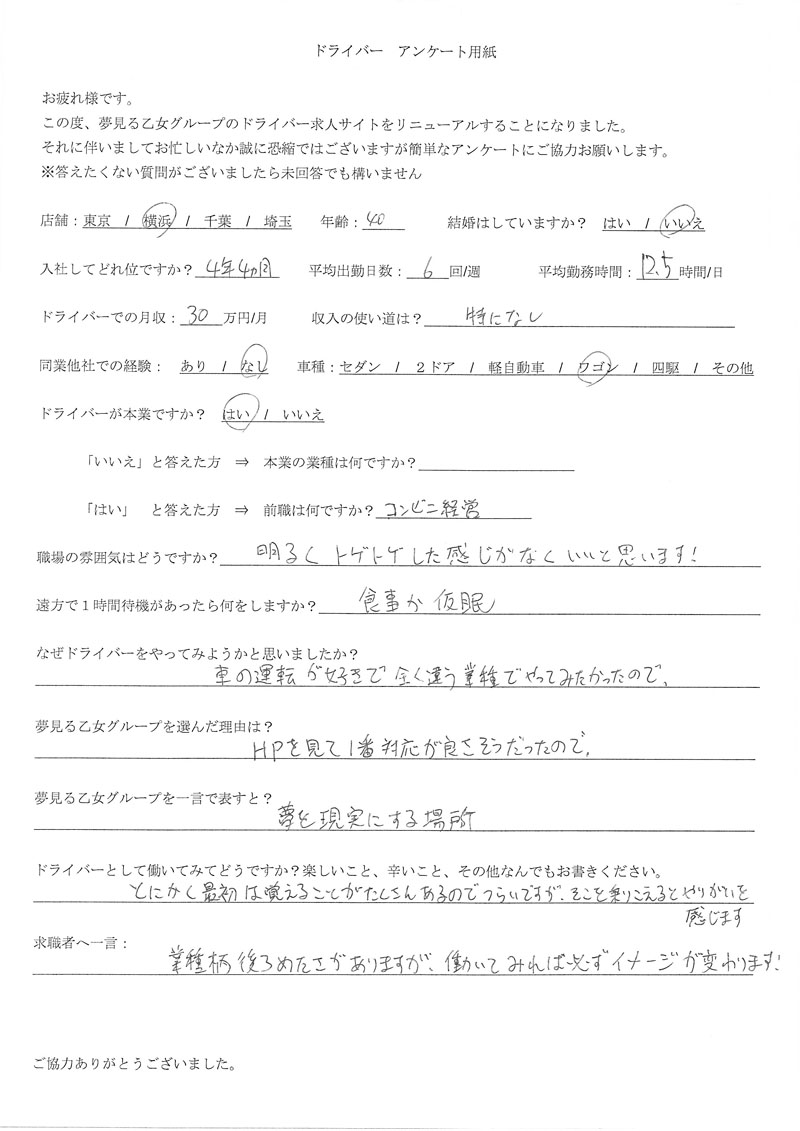 ドライバー　アンケート用紙
お疲れ様です。
この度、夢見る乙女グループのドライバー求人サイトをリニューアルすることになりました。
それに伴いましてお忙しいなか誠に恐縮ではございますが簡単なアンケートにご協力お願いします。
※答えたくない質問がございましたら未回答でも構いません
店舗：東京 / 横浜 / 千葉 / 埼玉　年齢：40　結婚はしていますか？　はい / いいえ
入社してどれ位ですか？ 4年4ヵ月　平均出勤日数： 6 回/週　平均勤務時間：12.5 時間/日
ドライバーでの月収： 30 万円/月　収入の使い道は？ 特になし
同業他社での経験：　あり / なし　車種：セダン / 2ドア / 軽自動車 / ワゴン / 四駆 / その他
ドライバーが本業ですか？　はい / いいえ
「いいえ」と答えた方　⇒　本業の業種は何ですか？
「はい」　と答えた方　⇒　前職は何ですか？ コンビニ経営
職場の雰囲気はどうですか？ 明るくトゲトゲした感じがなくいいと思います!
遠方で１時間待機があったら何をしますか？ 食事か仮眠
なぜドライバーをやってみようかと思いましたか？
車の運転が好きで全く違う業種でやってみたかったので。
夢見る乙女グループを選んだ理由は？
HPを見て1番対応が良さそうだったので。
夢見る乙女グループを一言で表すと？
夢を現実にする場所
ドライバーとして働いてみてどうですか？楽しいこと、辛いこと、その他なんでもお書きください。
とにかく最初は覚えることがたくさんあるのでつらいですが、そこを乗りこえるとやりがいを
感じます
求職者へ一言：
業種柄後ろめたさがありますが、働いてみれば必ずイメージが変わります!
ご協力ありがとうございました。